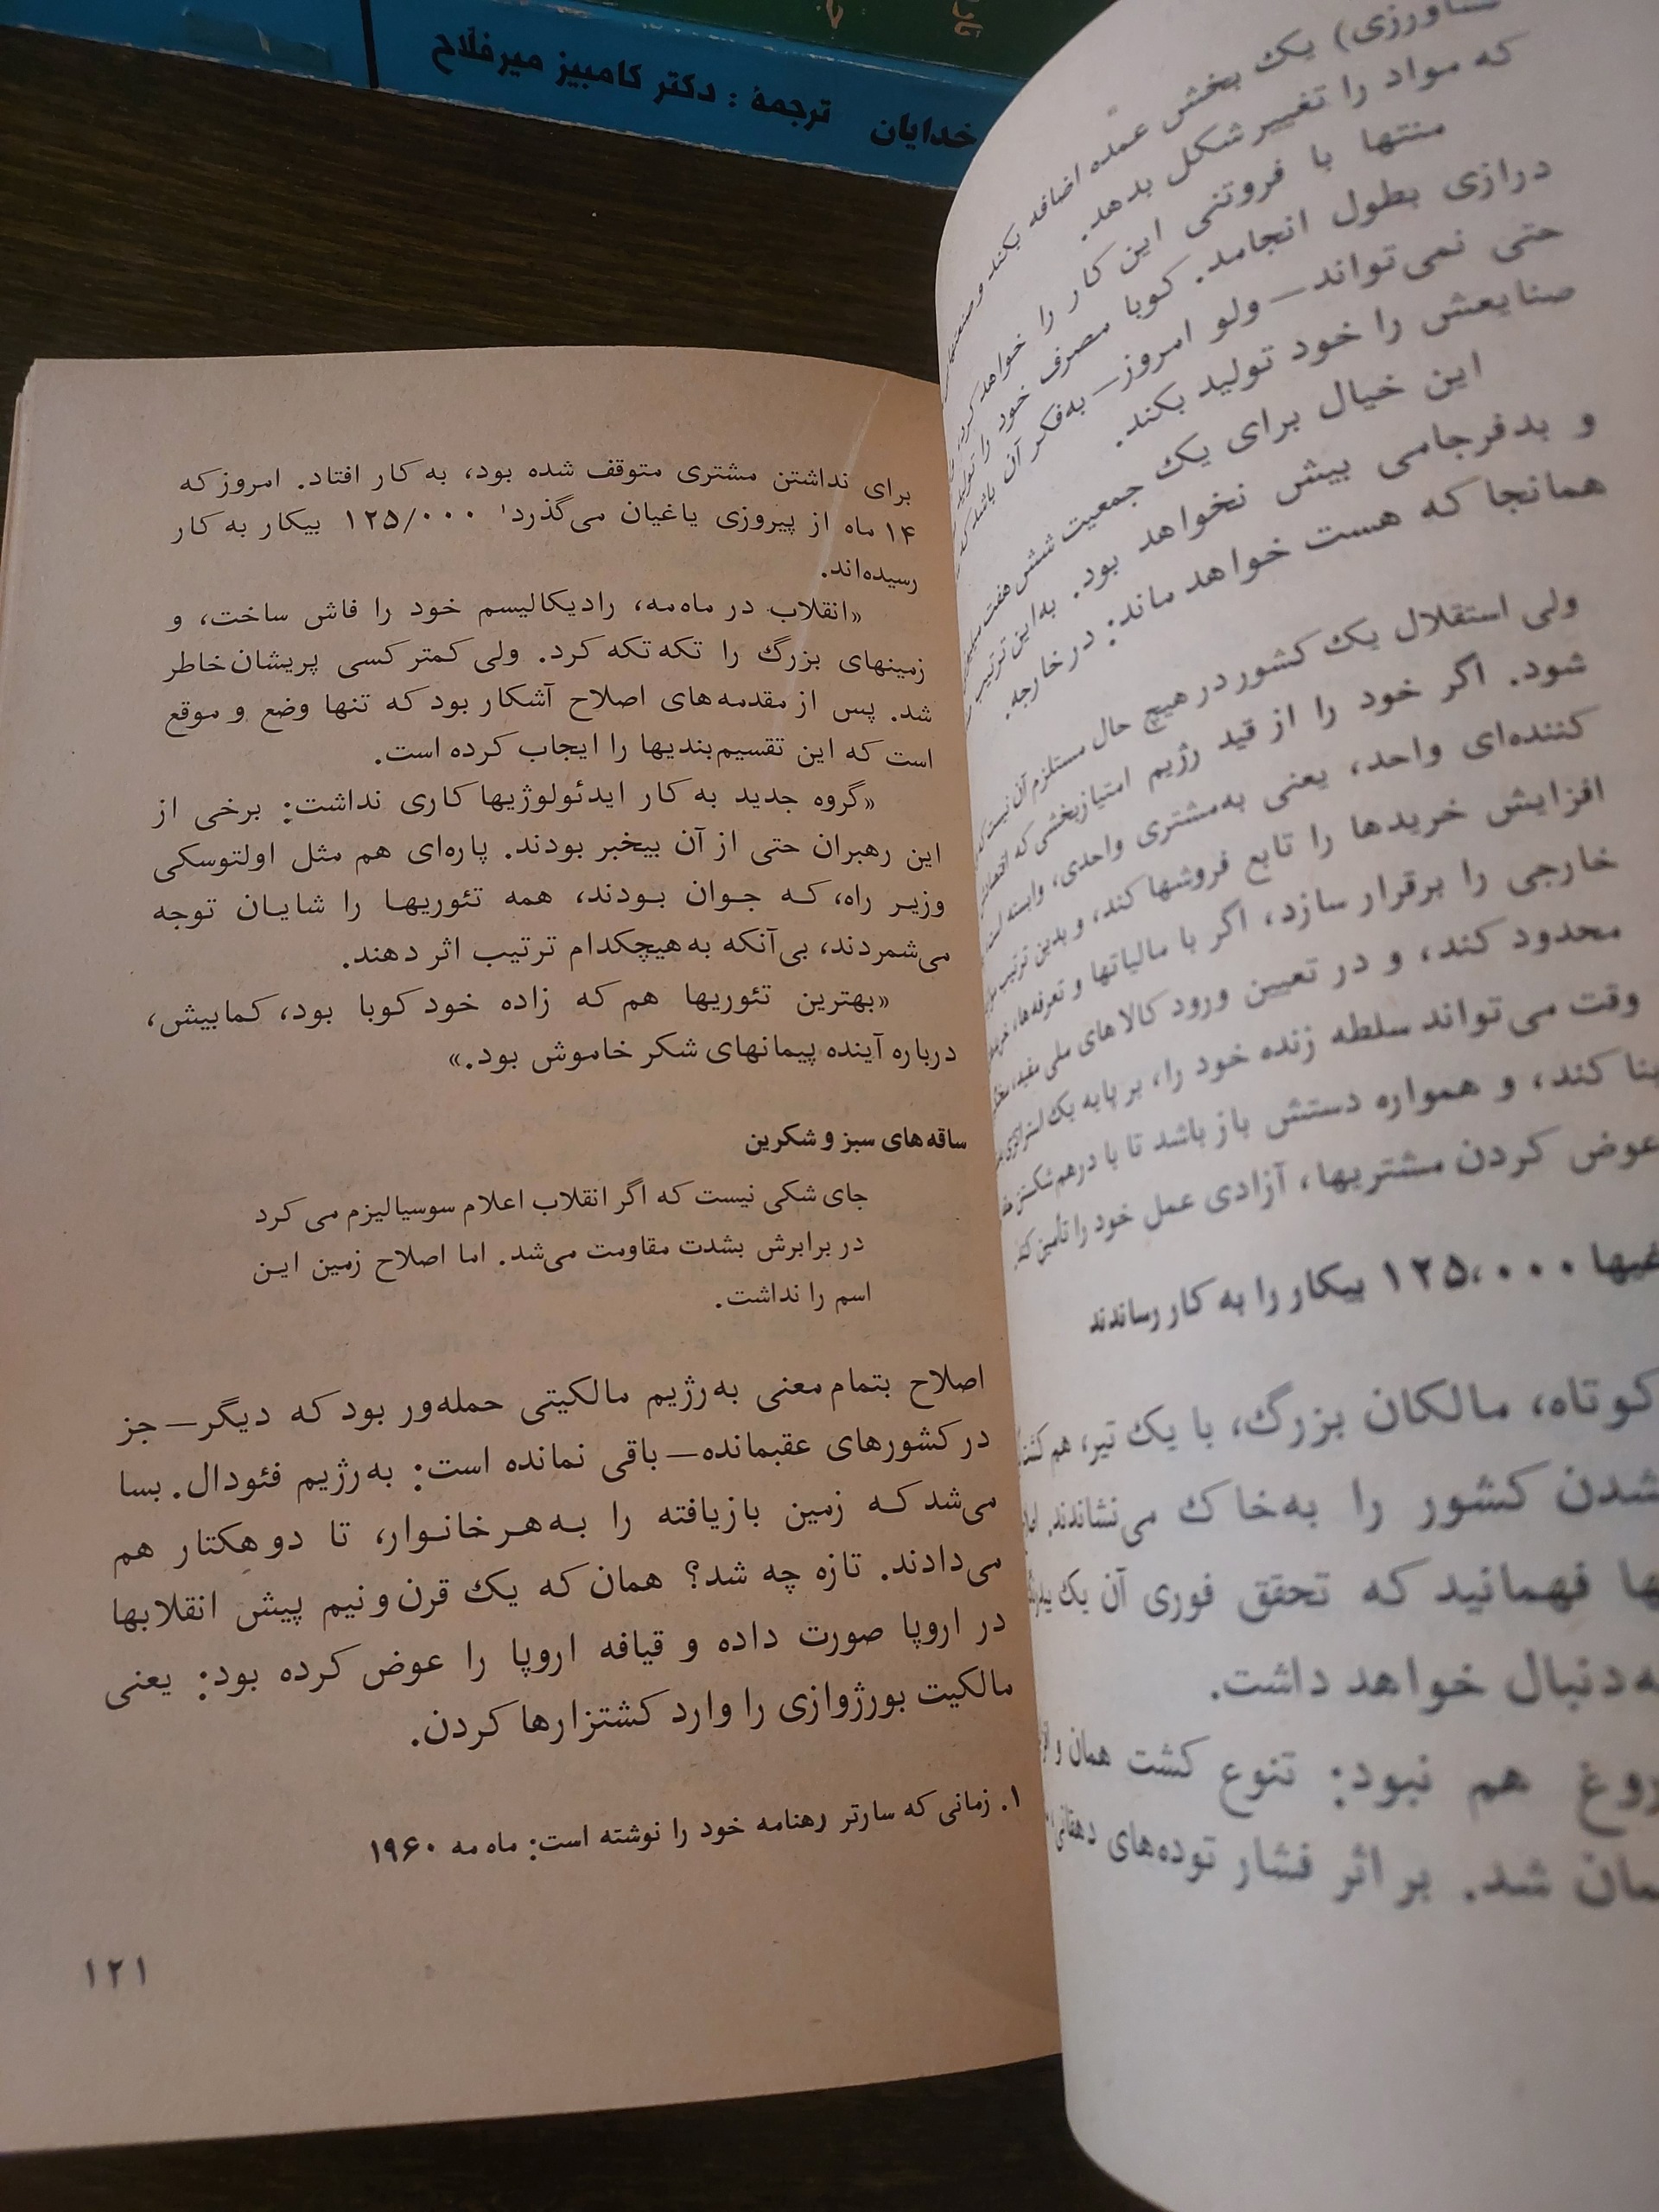 خدایان ترجمهٔ : دکتر کامبیز میرفلّاح
یک بخش عمده اضافه بکند و
که مواد را تغییر شکل بدهد.
منتها با فروتنی این کار را خواهد کرد،
درازی بطول انجامد. کوبا مصرف خود را تولید
حتی نمی‌تواند — ولو امروز — به‌فکر آن باشد که
صنایعش را خود تولید بکند.
این خیال برای یک جمعیت شش هفت
و بدفرجامی بیش نخواهد بود. به‌این ترتیب
همانجا که هست خواهد ماند: در خارجه.
ولی استقلال یک کشور در هیچ حال مستلزم آن نیست که
شود. اگر خود را از قید رژیم امتیازبخشی که
کننده‌ای واحد، یعنی به‌مشتری واحدی، وابسته
افزایش خریدها را تابع فروشها کند، و بدین ترتیب
خارجی را برقرار سازد، اگر با مالیاتها و تعرفه‌ها،
محدود کند، و در تعیین ورود کالاهای ملی مفید،
وقت می‌تواند سلطه زنده خود را، بر پایه یک
بنا کند، و همواره دستش باز باشد تا با درهم‌شکستن
عوض کردن مشتریها، آزادی عمل خود را تأمین کند.
۱۲۵،۰۰۰ بیکار را به کار رساندند
کوتاه، مالکان بزرگ، با یک تیر، هم
شدن کشور را به‌خاک می‌نشاندند.
فهمانید که تحقق فوری آن یک
به‌دنبال خواهد داشت.
هم نبود: تنوع کشت همان و
شد. بر اثر فشار توده‌های دهقانی
برای نداشتن مشتری متوقف شده بود، به کار افتاد. امروز که
۱۴ ماه از پیروزی یاغیان می‌گذرد۱ ۱۲۵/۰۰۰ بیکار به کار
رسیده‌اند.
«انقلاب در ماه‌مه، رادیکالیسم خود را فاش ساخت، و
زمینهای بزرگ را تکه تکه کرد. ولی کمتر کسی پریشان‌خاطر
شد. پس از مقدمه‌های اصلاح آشکار بود که تنها وضع و موقع
است که این تقسیم‌بندیها را ایجاب کرده است.
«گروه جدید به کار ایدئولوژیها کاری نداشت: برخی از
این رهبران حتی از آن بیخبر بودند. پاره‌ای هم مثل اولتوسکی
وزیر راه، که جوان بودند، همه تئوریها را شایان توجه
می‌شمردند، بی‌آنکه به‌هیچکدام ترتیب اثر دهند.
«بهترین تئوریها هم که زاده خود کوبا بود، کمابیش،
درباره آینده پیمانهای شکر خاموش بود.»
ساقه‌های سبز و شکرین
جای شکی نیست که اگر انقلاب اعلام سوسیالیزم می کرد
در برابرش بشدت مقاومت می‌شد. اما اصلاح زمین این
اسم را نداشت.
اصلاح بتمام معنی به‌رژیم مالکیتی حمله‌ور بود که دیگر — جز
در کشورهای عقبمانده — باقی نمانده است: به‌رژیم فئودال. بسا
می‌شد که زمین بازیافته را به‌هر خانوار، تا دو هکتار هم
می‌دادند. تازه چه شد؟ همان که یک قرن و نیم پیش انقلابها
در اروپا صورت داده و قیافه اروپا را عوض کرده بود: یعنی
مالکیت بورژوازی را وارد کشتزارها کردن.
۱. زمانی که سارتر رهنامه خود را نوشته است: ماه مه ۱۹۶۰
۱۲۱